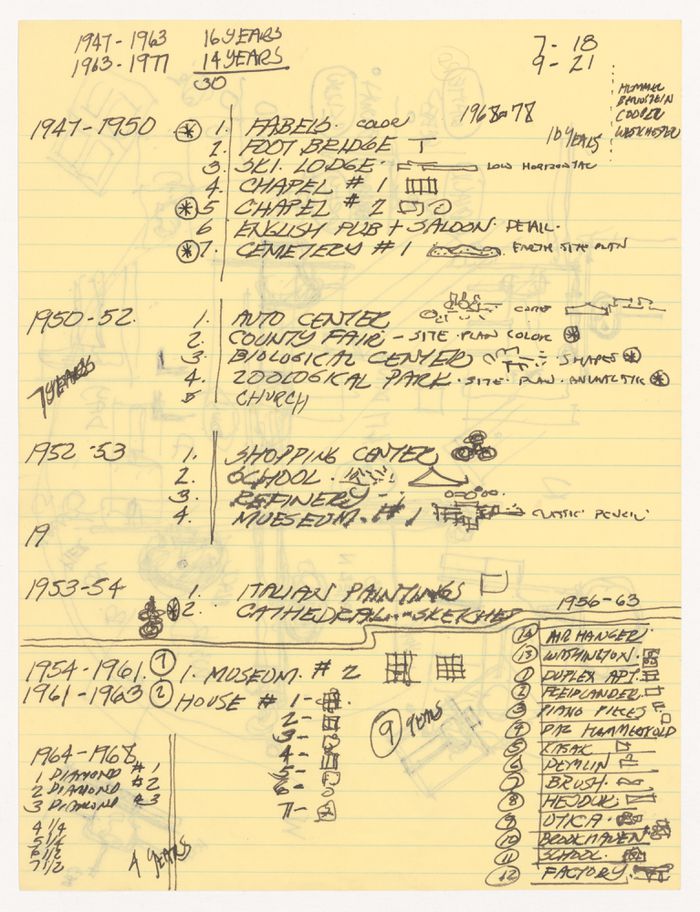 1947-1963 16 YEARS
1963-1977 14 YEARS
30
7- 18
9- 21
BERNSTEIN
COOPER
WESTCHESTER
1968-78
10 YEARS
1947-1950
* 1. FABELS. COLOR
2. FOOT BRIDGE
3. SKI. LODGE. LOW HORIZONTAL
4. CHAPEL # 1
* 5 CHAPEL # 2
6 ENGLISH PUB + SALOON. DETAIL.
* 7. CEMETERY # 1 EARTH SITE PLAN
1950-52.
1. AUTO CENTER
2. COUNTY FAIR - SITE PLAN COLOR *
3. BIOLOGICAL CENTER SHAPES *
4. ZOOLOGICAL PARK. SITE. PLAN. *
5 CHURCH
7 YEARS
1952-53
1. SHOPPING CENTER
2. SCHOOL.
3. REFINERY -
4. MUESEUM. # 1 CLASSIC PENCIL
19
1953-54
1. ITALIAN PAINTINGS
* 2. CATHEDRAL - SKETCHES
1954-1961. 7 1. MUSEUM. # 2
1961-1963 2 HOUSE # 1-
2-
3-
4-
5-
6-
7-
9 YEARS
1964-1968
1 DIAMOND # 1
2 DIAMOND # 2
3 DIAMOND # 3
4 1/4
5 1/4
6 1/2
7 1/2
4 YEARS
1956-63
14 AIR HANGER
13 WASHINGTON.
1 DUPLEX APT.
2 FREIDLANDER.
3 PIANO PIECES
4 DAG HAMMERSKOLD
5
6 DEMLIN
7 BRUSH.
8 HEJDUK
9 UTICA.
10 BROOKHAVEN
11 SCHOOL.
12 FACTORY.